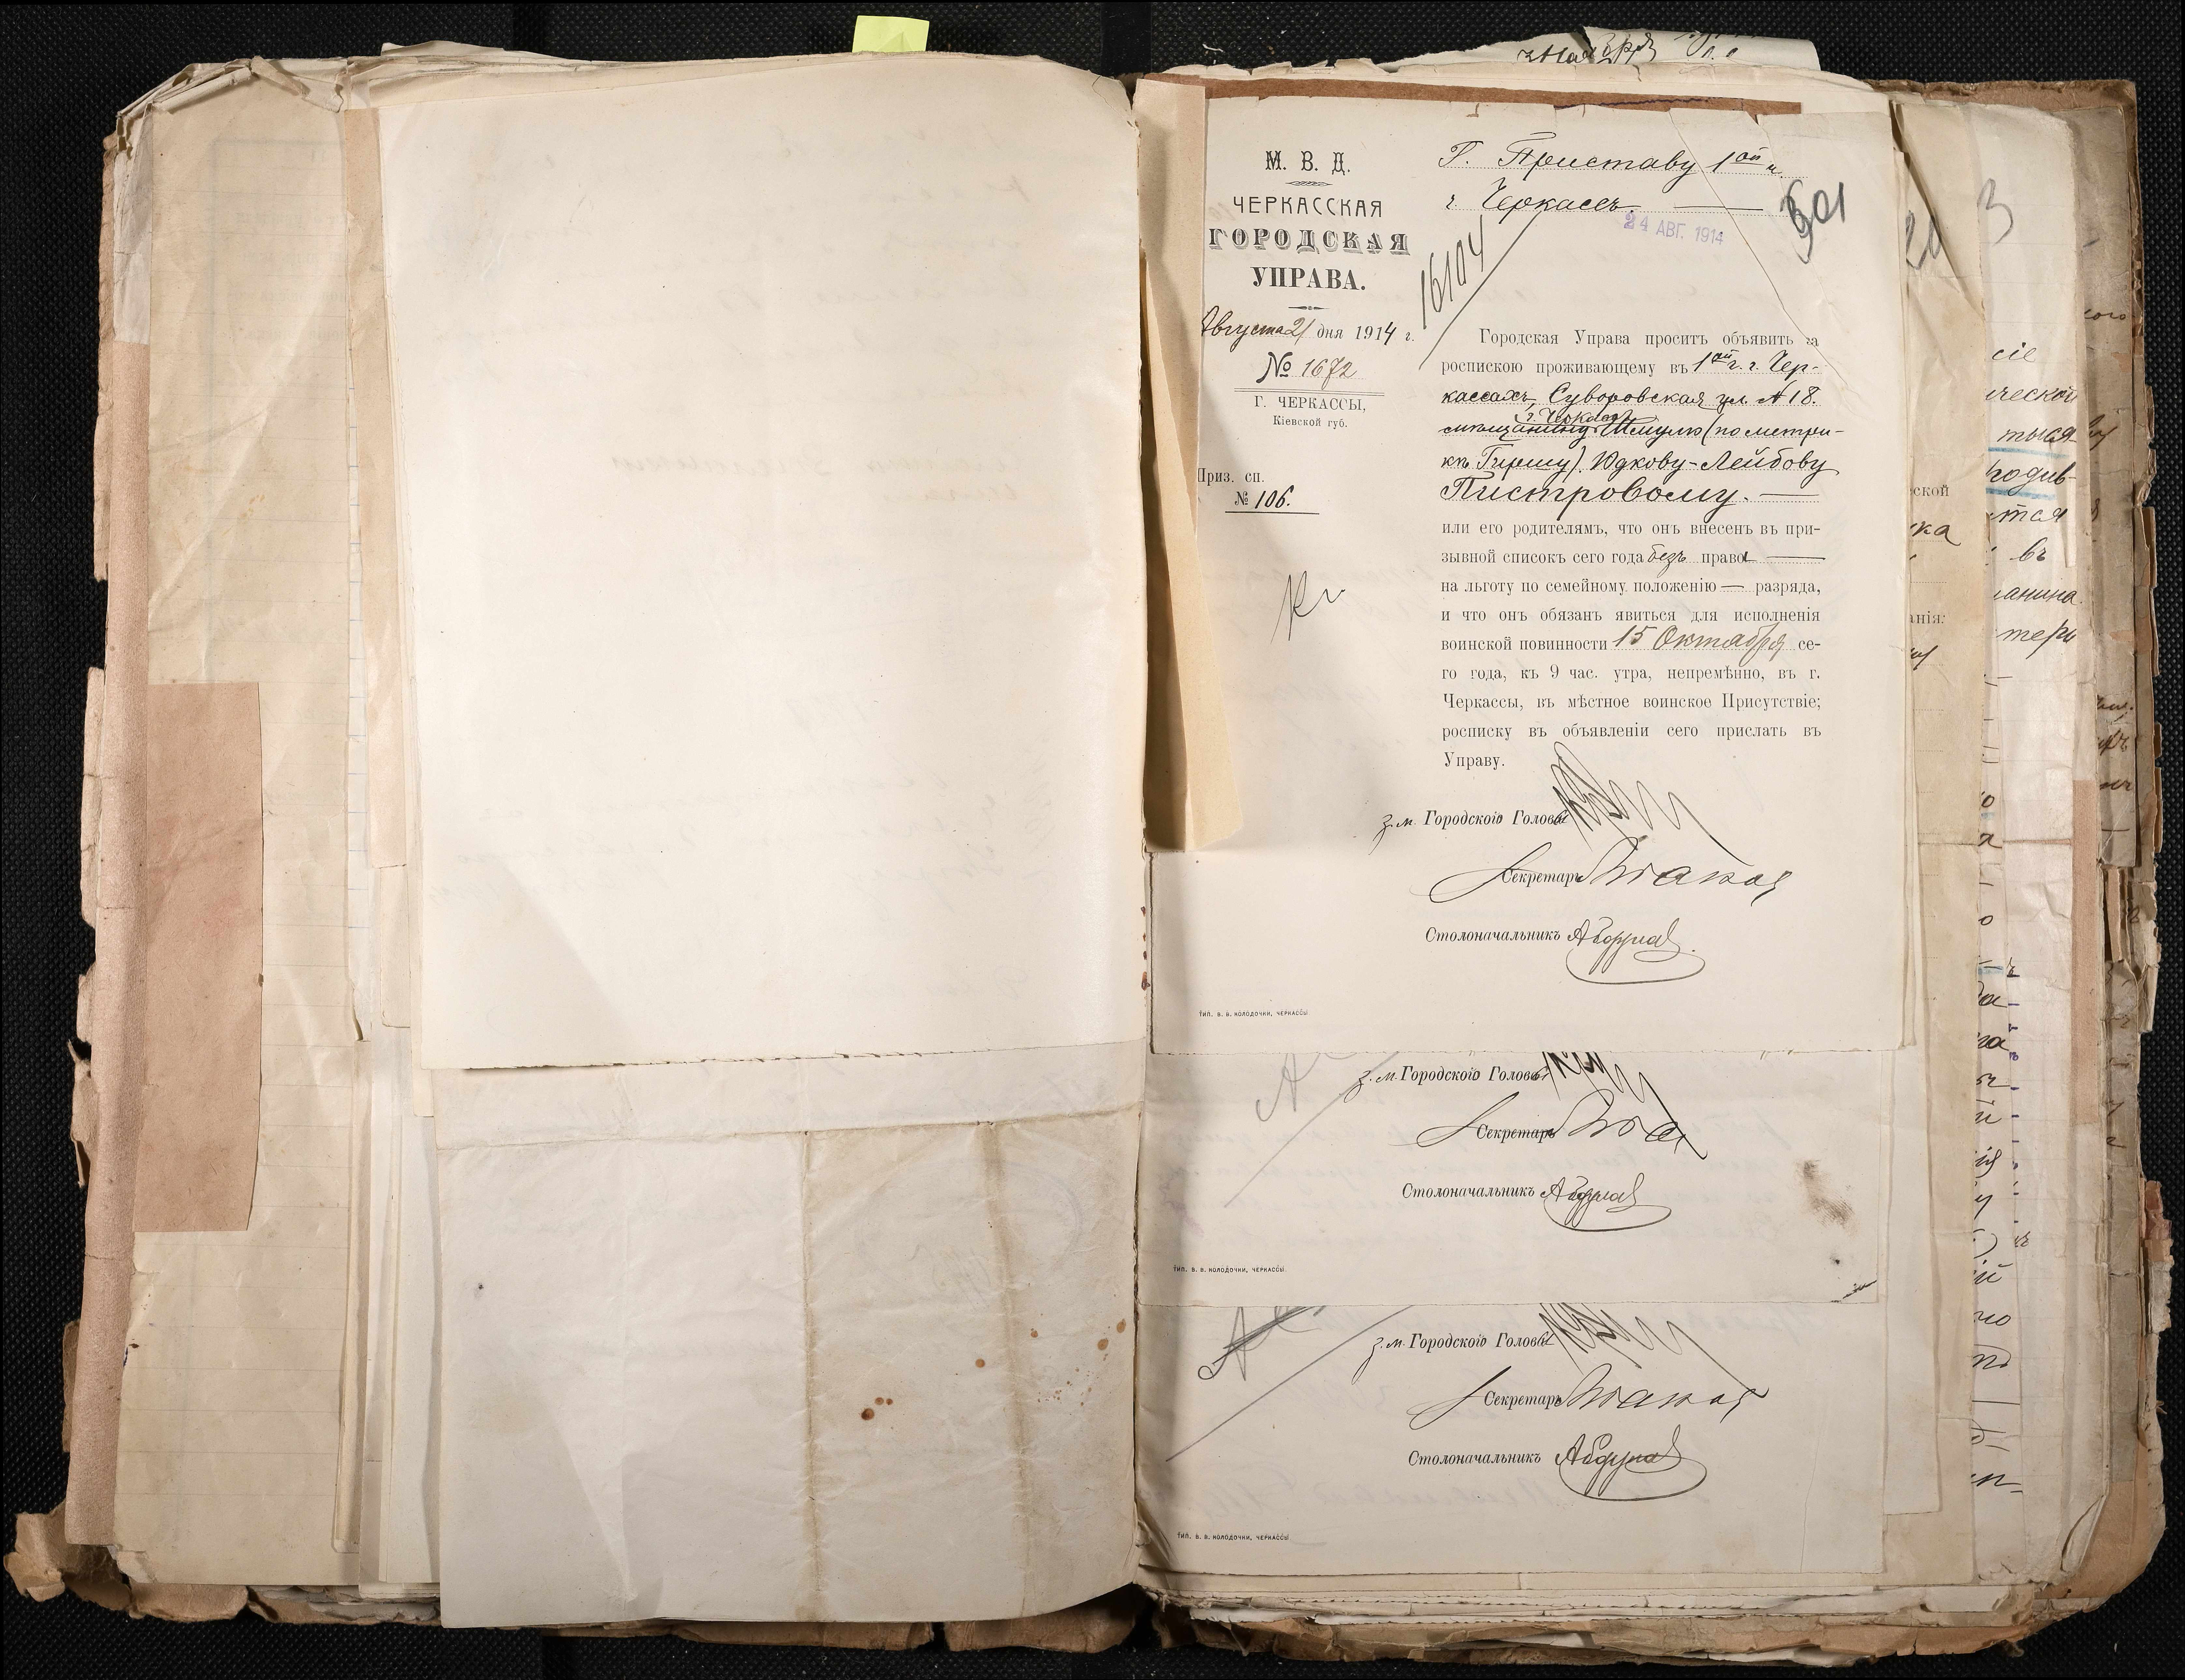 М. В. Д.
ЧЕРКАССКАЯ
ГОРОДСКАЯ
УПРАВА.
Августа 21 дня 1914 г.
№ 1672
Г. ЧЕРКАССЫ,
Кіевской губ.
Приз. сп.
№ 106.
Г. Приставу 1ой ч.
г. Черкассъ.
24 АВГ. 1914
301
16104
Городская Управа проситъ объявить за
роспискою проживающему въ 1ой ч. г. Чер-
кассахъ, Суворовская ул. № 18.
г. Черкассъ
мѣщанину Шмулю (по метри-
кѣ Гершу) Юдкову-Лейбову
Пистровому.
или его родителямъ, что онъ внесенъ въ при-
зывной списокъ сего года безъ права
на льготу по семейному положенію — разряда,
и что онъ обязанъ явиться для исполненія
воинской повинности 15 Октября се-
го года, къ 9 час. утра, непремѣнно, въ г.
Черкассы, въ мѣстное воинское Присутствіе;
росписку въ объявленіи сего прислать въ
Управу.
з. м. Городского Головы
Секретарь
Столоначальникъ
ТИП. В. В. КОЛОДОЧКИ, ЧЕРКАССЫ
з. м. Городского Головы
Секретарь
Столоначальникъ
ТИП. В. В. КОЛОДОЧКИ, ЧЕРКАССЫ.
з. м. Городского Головы
Секретарь
Столоначальникъ
ТИП. В. В. КОЛОДОЧКИ, ЧЕРКАССЫ